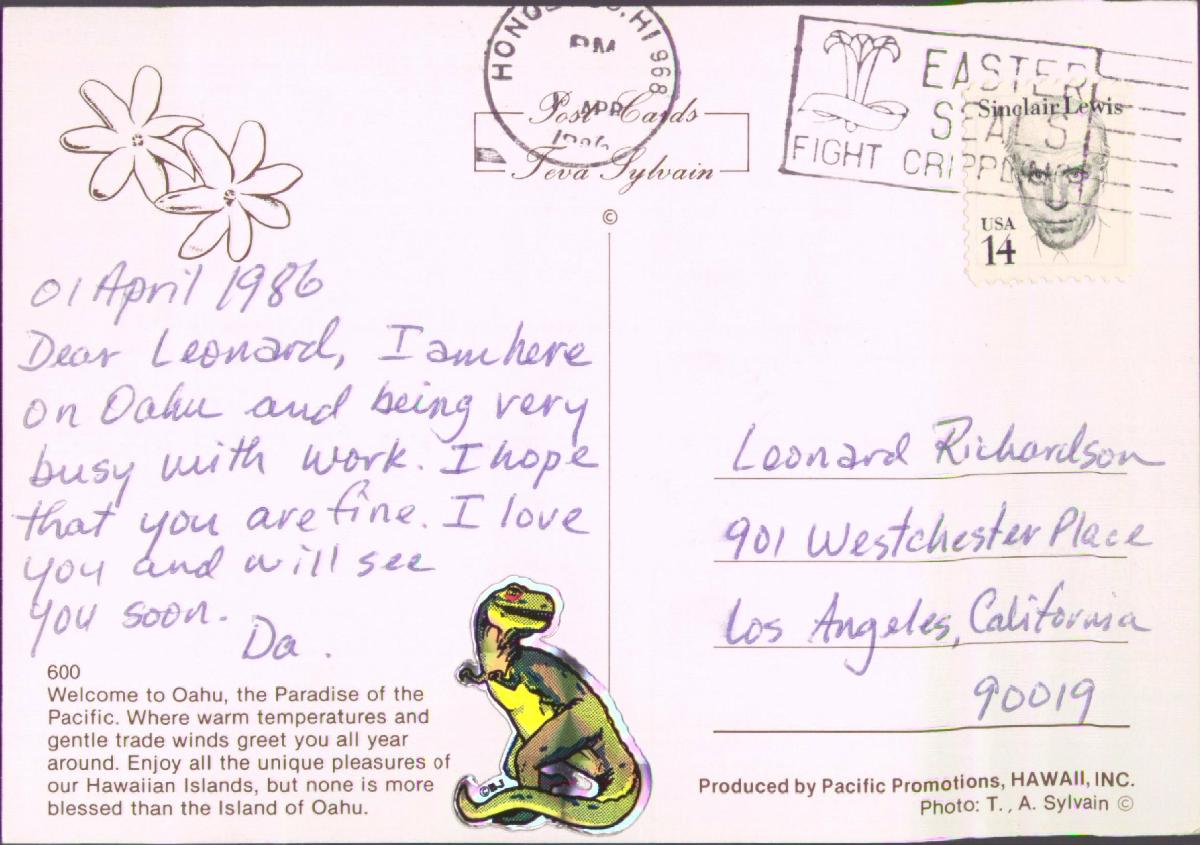 HONO, HI 968
PM
APR
1986
EASTER
SEALS
FIGHT CRIPPL
Sinclair Lewis
USA
14
Post Cards
Teva Sylvain
©
01 April 1986
Dear Leonard, I am here
on Oahu and being very
busy with work. I hope
that you are fine. I love
you and will see
you soon.
Da.
600
Welcome to Oahu, the Paradise of the
Pacific. Where warm temperatures and
gentle trade winds greet you all year
around. Enjoy all the unique pleasures of
our Hawaiian Islands, but none is more
blessed than the Island of Oahu.
©RJ
Leonard Richardson
901 Westchester Place
Los Angeles, California
90019
Produced by Pacific Promotions, HAWAII, INC.
Photo: T., A. Sylvain ©